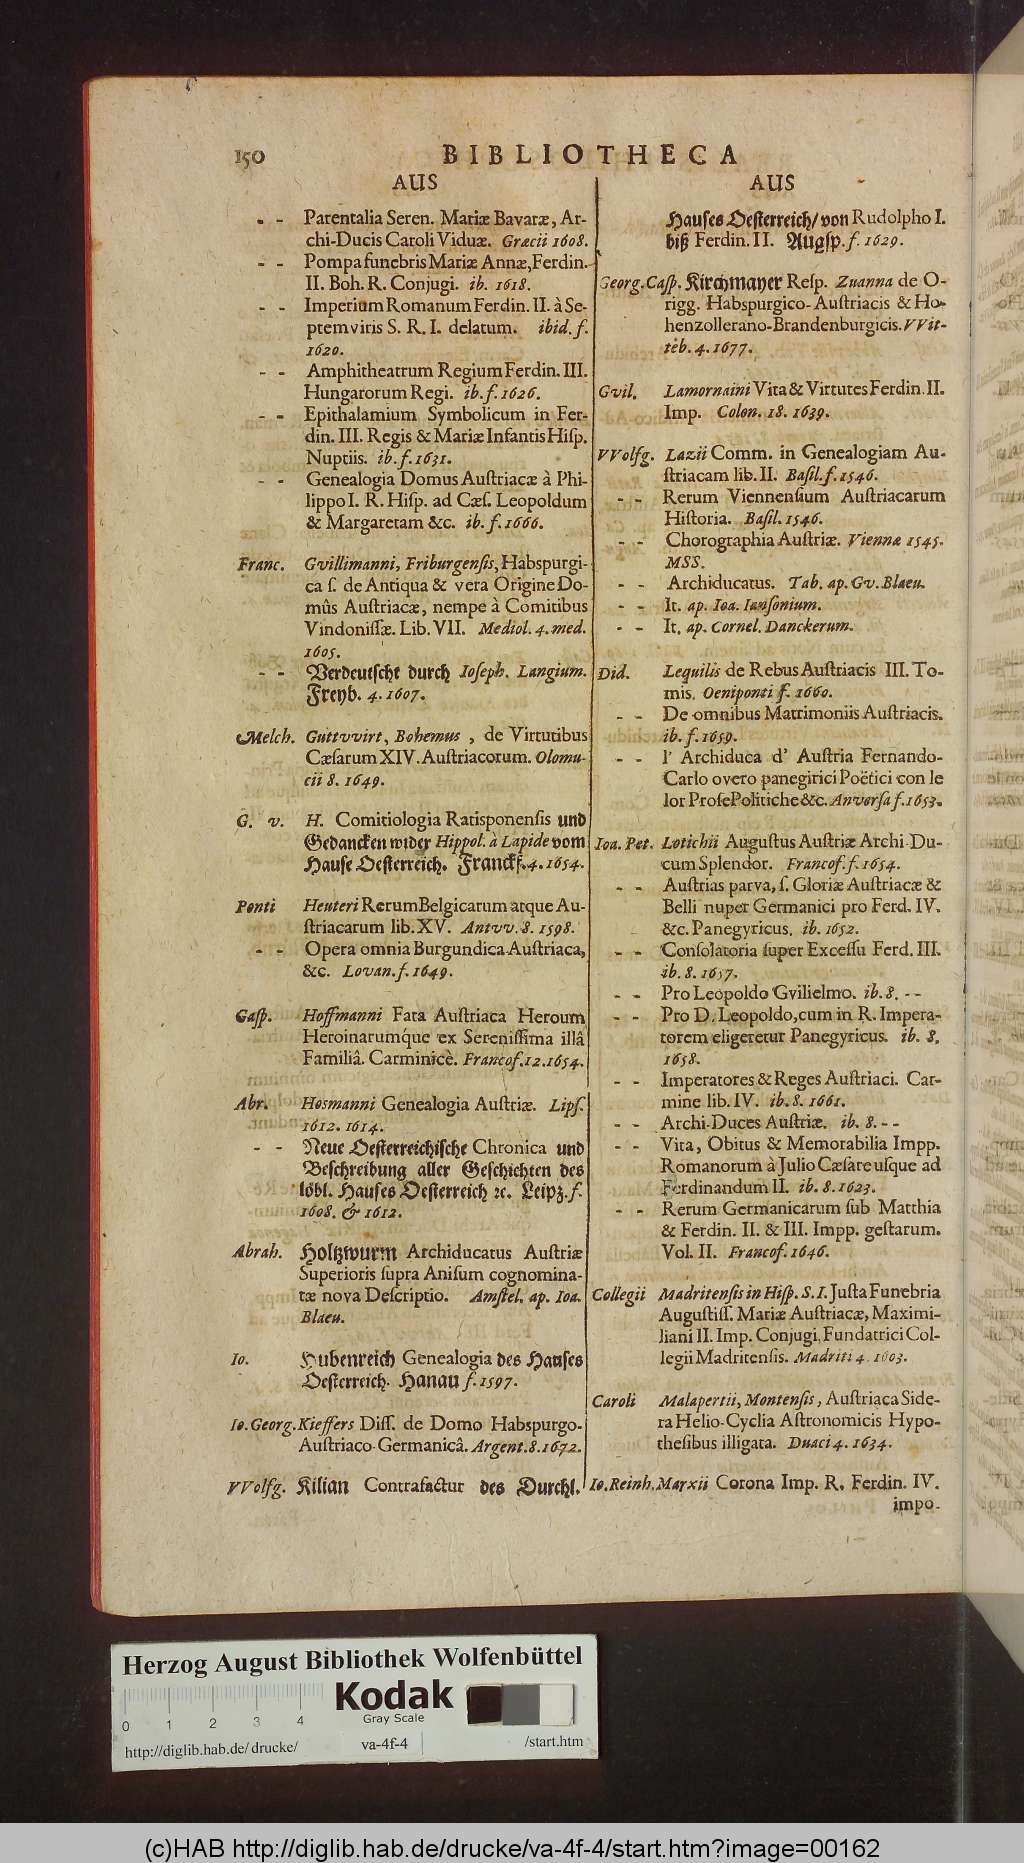 150 BIBLIOTHECA
AUS
- - Parentalia Seren. Mariæ Bavaræ, Ar-
chi-Ducis Caroli Viduæ. Græcii 1608.
- - Pompa funebris Mariæ Annæ, Ferdin.
II. Boh. R. Conjugi. ib. 1618.
- - Imperium Romanum Ferdin. II. à Se-
ptemviris S. R. I. delatum. ibid. f.
1620.
- - Amphitheatrum Regium Ferdin. III.
Hungarorum Regi. ib. f. 1626.
- - Epithalamium Symbolicum in Fer-
din. III. Regis & Mariæ Infantis Hiſp.
Nuptiis. ib. f. 1631.
- - Genealogia Domus Auſtriacæ à Phi-
lippo I. R. Hiſp. ad Cæſ. Leopoldum
& Margaretam &c. ib. f. 1666.
Franc. Gvillimanni, Friburgenſis, Habspurgi-
ca ſ. de Antiqua & vera Origine Do-
mûs Auſtriacæ, nempe à Comitibus
Vindoniſſæ. Lib. VII. Mediol. 4. med.
1605.
- - Verdeutſcht durch Ioſeph. Langium.
Freyb. 4. 1607.
Melch. Guttvvirt, Bohemus, de Virtutibus
Cæſarum XIV. Auſtriacorum. Olomu-
cii 8. 1649.
G. v. H. Comitiologia Ratisponenſis und
Gedancken wider Hippol. à Lapide vom
Hauſe Oeſterreich. Franckf. 4. 1654.
Ponti Heuteri Rerum Belgicarum atque Au-
ſtriacarum lib. XV. Antvv. 8. 1598.
- - Opera omnia Burgundica Auſtriaca,
&c. Lovan. f. 1649.
Gaſp. Hoffmanni Fata Auſtriaca Heroum
Heroinarumq́ue ex Sereniſſima illâ
Familiâ. Carminicè. Francof. 12. 1654.
Abr. Hosmanni Genealogia Auſtriæ. Lipſ.
1612. 1614.
- - Neue Oeſterreichiſche Chronica und
Beſchreibung aller Geſchichten des
löbl. Hauſes Oeſterreich ꝛc. Leipz. f.
1608. & 1612.
Abrah. Holtzwurm Archiducatus Auſtriæ
Superioris ſupra Aniſum cognomina-
tæ nova Deſcriptio. Amſtel. ap. Ioa.
Blaeu.
Io. Hubenreich Genealogia des Hauſes
Oeſterreich. Hanau f. 1597.
Io. Georg. Kieffers Diſſ. de Domo Habspurgo-
Auſtriaco-Germanicâ. Argent. 8. 1672.
VVolfg. Kilian Contrafactur des Durchl.
AUS
Hauſes Oeſterreich/ von Rudolpho I.
biß Ferdin. II. Augſp. f. 1629.
Georg. Caſp. Kirchmayer Reſp. Zuanna de O-
rigg. Habspurgico-Auſtriacis & Ho-
henzollerano-Brandenburgicis. VVit-
teb. 4. 1677.
Gvil. Lamornaini Vita & Virtutes Ferdin. II.
Imp. Colon. 18. 1639.
VVolfg. Lazii Comm. in Genealogiam Au-
ſtriacam lib. II. Baſil. f. 1546.
- - Rerum Viennenſium Auſtriacarum
Hiſtoria. Baſil. 1546.
- - Chorographia Auſtriæ. Viennæ 1545.
MSS.
- - Archiducatus. Tab. ap. Gv. Blaeu.
- - It. ap. Ioa. Ianſonium.
- - It. ap. Cornel. Danckerum.
Did. Lequilis de Rebus Auſtriacis III. To-
mis. Oeniponti f. 1660.
- - De omnibus Matrimoniis Auſtriacis.
ib. f. 1659.
- - l' Archiduca d' Auſtria Fernando-
Carlo overo panegirici Poëtici con le
lor Proſe Politiche &c. Anverſa f. 1653.
Ioa. Pet. Lotichii Auguſtus Auſtriæ Archi-Du-
cum Splendor. Francof. f. 1654.
- - Auſtrias parva, ſ. Gloriæ Auſtriacæ &
Belli nuper Germanici pro Ferd. IV.
&c. Panegyricus. ib. 1652.
- - Conſolatoria ſuper Exceſſu Ferd. III.
ib. 8. 1657.
- - Pro Leopoldo Gvilielmo. ib. 8. - -
- - Pro D. Leopoldo, cum in R. Impera-
torem eligeretur Panegyricus. ib. 8.
1658.
- - Imperatores & Reges Auſtriaci. Car-
mine lib. IV. ib. 8. 1661.
- - Archi-Duces Auſtriæ. ib. 8. - -
- - Vita, Obitus & Memorabilia Impp.
Romanorum à Julio Cæſare uſque ad
Ferdinandum II. ib. 8. 1623.
- - Rerum Germanicarum ſub Matthia
& Ferdin. II. & III. Impp. geſtarum.
Vol. II. Francof. 1646.
Collegii Madritenſis in Hiſp. S. I. Juſta Funebria
Auguſtiſſ. Mariæ Auſtriacæ, Maximi-
liani II. Imp. Conjugi, Fundatrici Col-
legii Madritenſis. Madriti 4. 1603.
Caroli Malapertii, Montenſis, Auſtriaca Side-
ra Helio-Cyclia Aſtronomicis Hypo-
theſibus illigata. Duaci 4. 1634.
Io. Reinh. Marxii Corona Imp. R. Ferdin. IV.
impo-
Herzog August Bibliothek Wolfenbüttel
0 1 2 3 4
Kodak
Gray Scale
http://diglib.hab.de/drucke/ va-4f-4 /start.htm
(c)HAB http://diglib.hab.de/drucke/va-4f-4/start.htm?image=00162